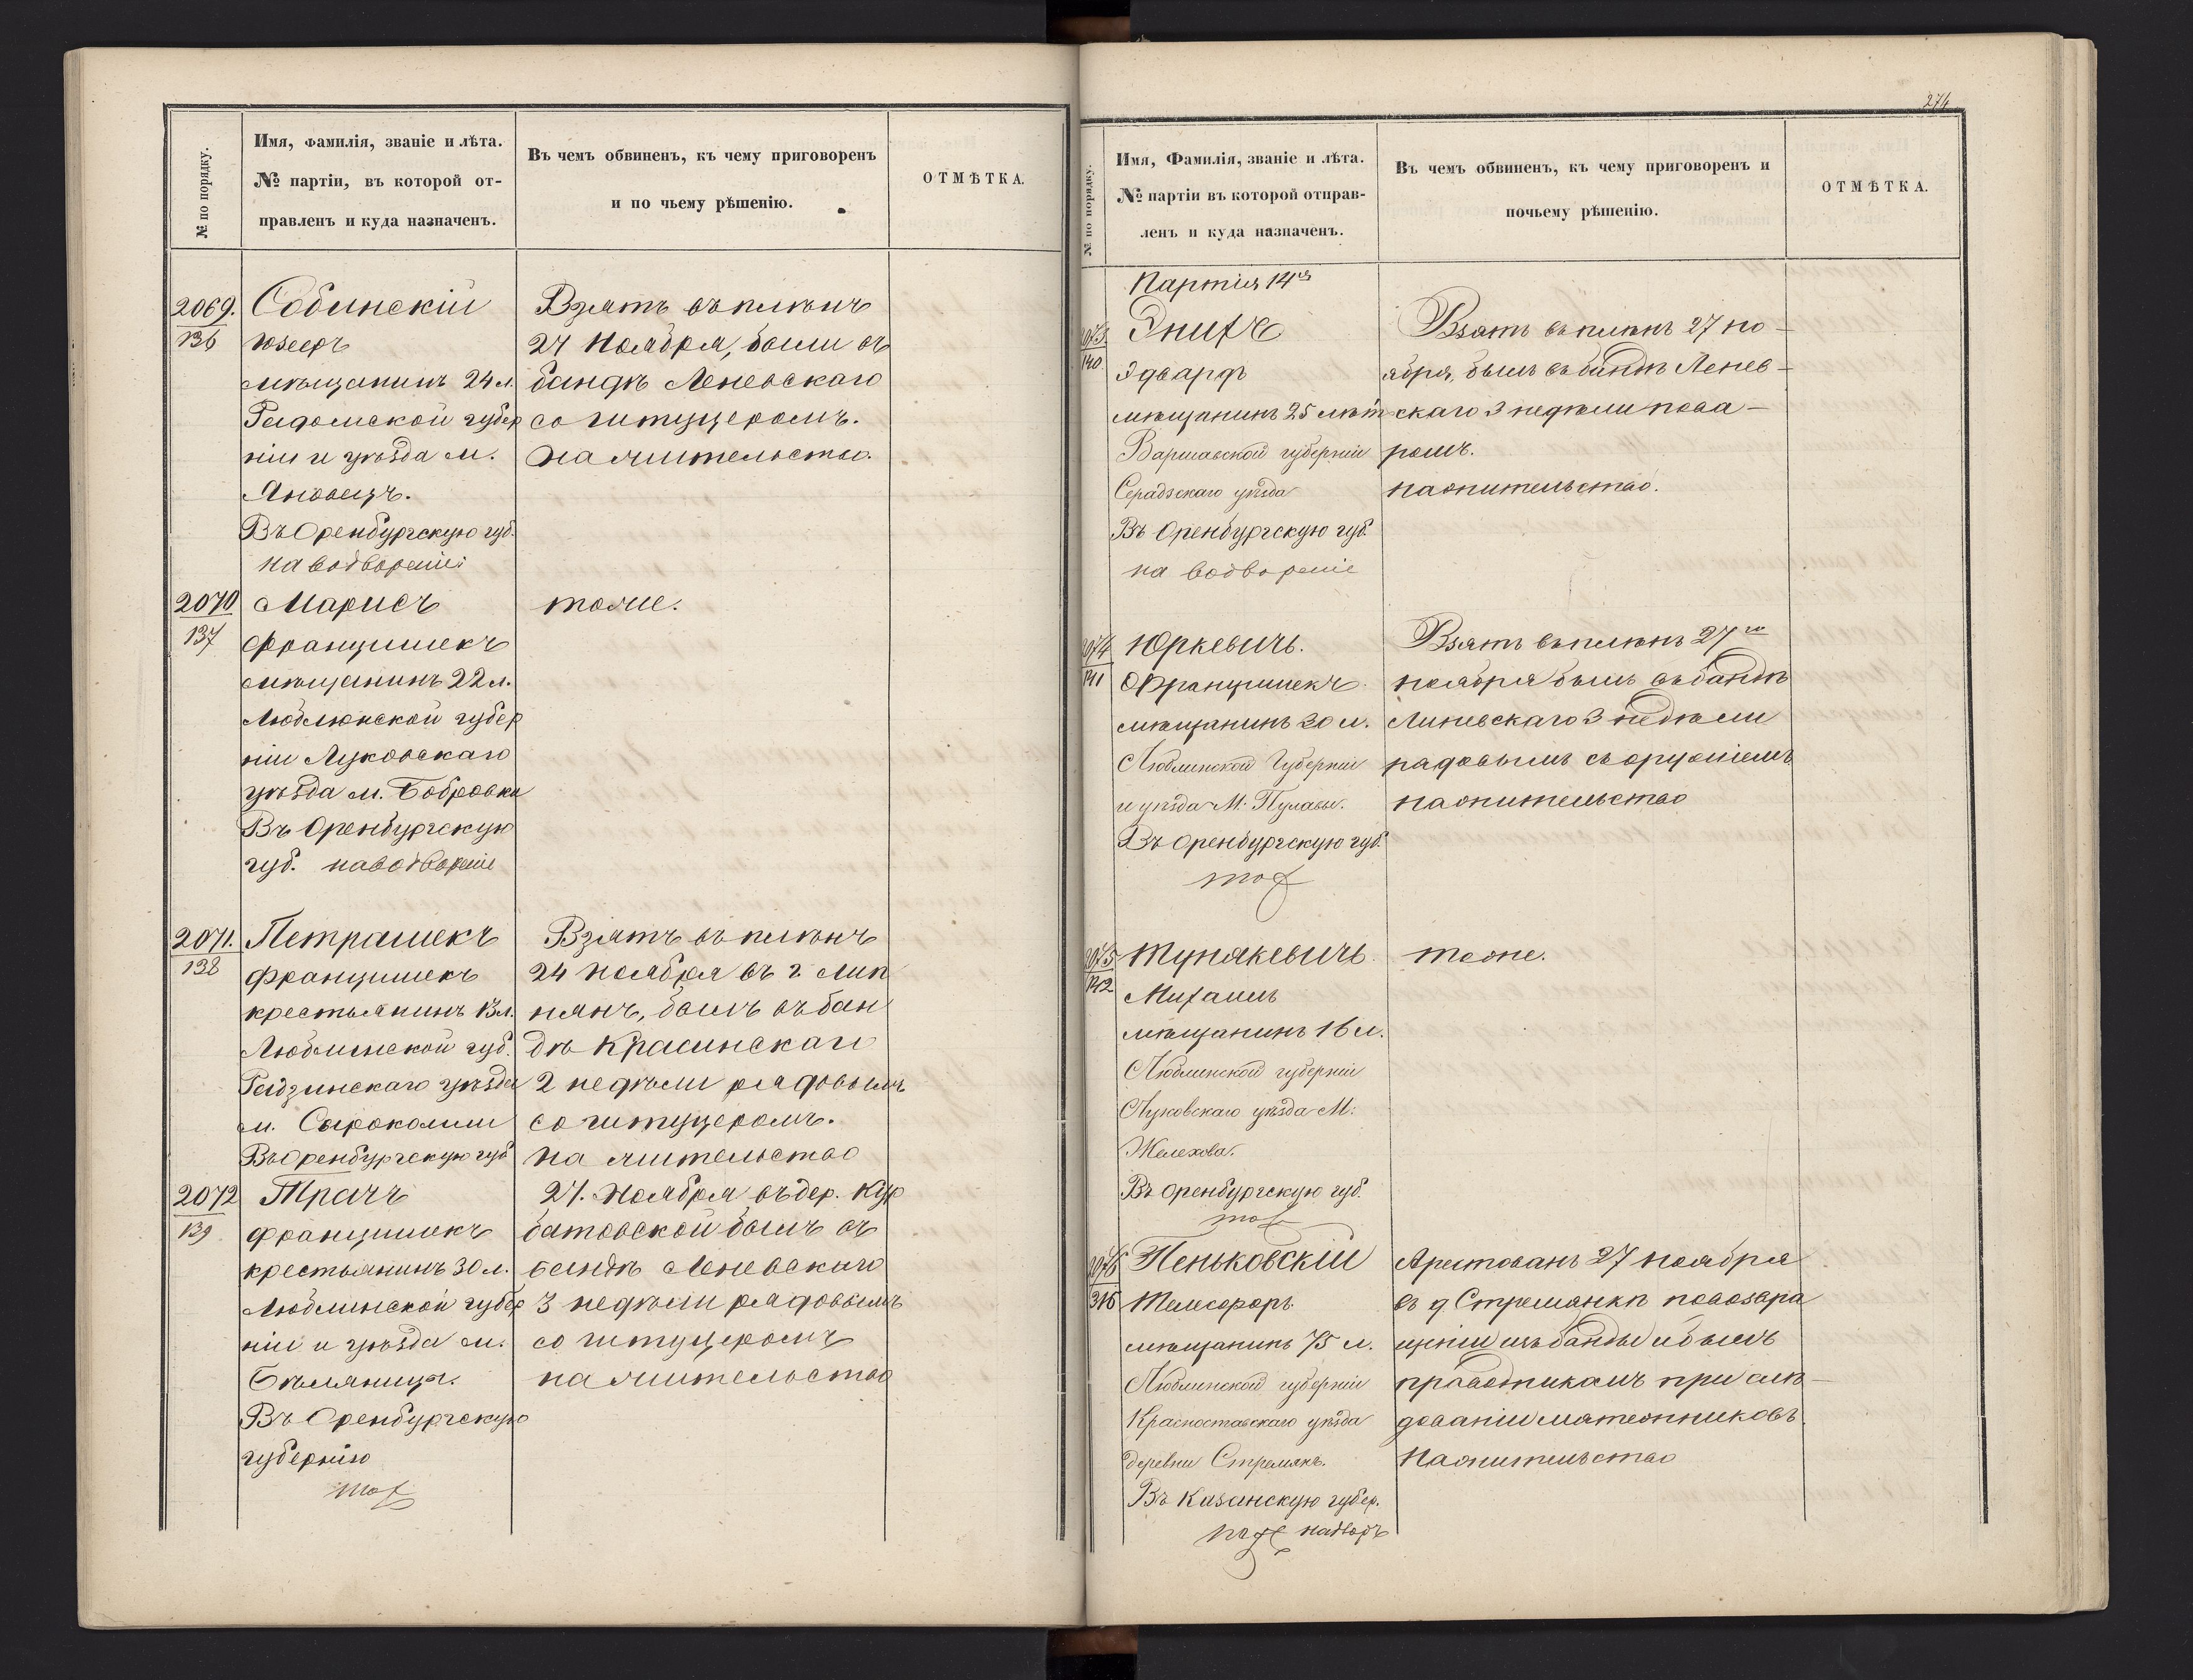 № по порядку.
Имя, фамилія, званіе и лѣта.
№ партіи, въ которой от-
правленъ и куда назначенъ.
Въ чемъ обвиненъ, къ чему приговоренъ
и по чьему рѣшенію.
ОТМѢТКА.
2069.
136
Собинскій
Юзефъ
мѣщанинъ 24 л.
Радомской губер
ніи и уѣзда м.
Яновецъ.
Въ Оренбургскую губ.
на водвореніе
Взятъ въ плѣнъ
24 Ноября, былъ въ
бандѣ Леневскаго
со штуцеромъ.
На жительство.
2070
137
Марисъ
Францишекъ
мѣщанинъ 22 л.
Люблюнской губер
ніи Луковскаго
уѣзда м. Бобровка
Въ Оренбургскую
губ. на водвореніе
тоже.
2071.
138
Петрашекъ
Францишекъ
крестьянинъ 18 л.
Люблинской губ.
Радзинскаго уѣзда
м. Сыроколши
Въ Оренбургскую губ
Взятъ въ плѣнъ
24 Ноября въ г. Лип
нянъ, былъ въ бан
дѣ Красинскаго
2 недѣли рядовымъ
со штуцеромъ.
На жительство
2072
139
Трачъ
Францишекъ
крестьянинъ 30 л.
Люблинской губер
ніи и уѣзда м.
Бѣляница.
Въ Оренбургскую
губернію
тоже
27. Ноября въ дер. Кур
батовской былъ въ
бандѣ Леневскаго
3 недѣли рядовымъ
со штуцеромъ
на жительство
274
№ по порядку.
Имя, Фамилія, званіе и лѣта.
№ партіи въ которой отправ-
ленъ и куда назначенъ.
Въ чемъ обвиненъ, къ чему приговоренъ и
почьему рѣшенію.
ОТМѢТКА.
Партія 14ая
2073
140
Энихе
Эдвардъ
мѣщанинъ 25 лѣтъ
Варшавской губерніи
Серадзскаго уѣзда
Въ Оренбургскую губ.
на водвореніе
Взятъ въ плѣнъ 27 но-
ября, былъ въ бандѣ Ленев-
скаго 3 недѣли пова-
ромъ.
на жительство.
2074
141
Юркевичъ.
Францишекъ
мѣщанинъ 30 л.
Люблинской Губерніи
и уѣзда М. Пулавы.
Въ Оренбургскую губ.
тоже
Взятъ въ плѣнъ 27го
ноября былъ въ бандѣ
Линевскаго 3 недѣли
рядовымъ съ оружіемъ
на жительство
2075
142
Тунякевичъ.
Михаилъ
мѣщанинъ 16 л.
Люблинской губерніи
Луковскаго уѣзда М.
Желехова.
Въ Оренбургскую губ.
тоже
тоже.
2076
316
Пеньковскій
Телесфоръ
мѣщанинъ 75 л.
Люблинской губерніи
Красноставскаго уѣзда
деревни Стремянкъ.
Въ Казанскую губер.
надворъ
Арестованъ 27 ноября
въ д. Стремянкѣ по возвра
щеніи изъ банды и былъ
проводникомъ при слѣ-
дованіи мятежниковъ.
На жительство